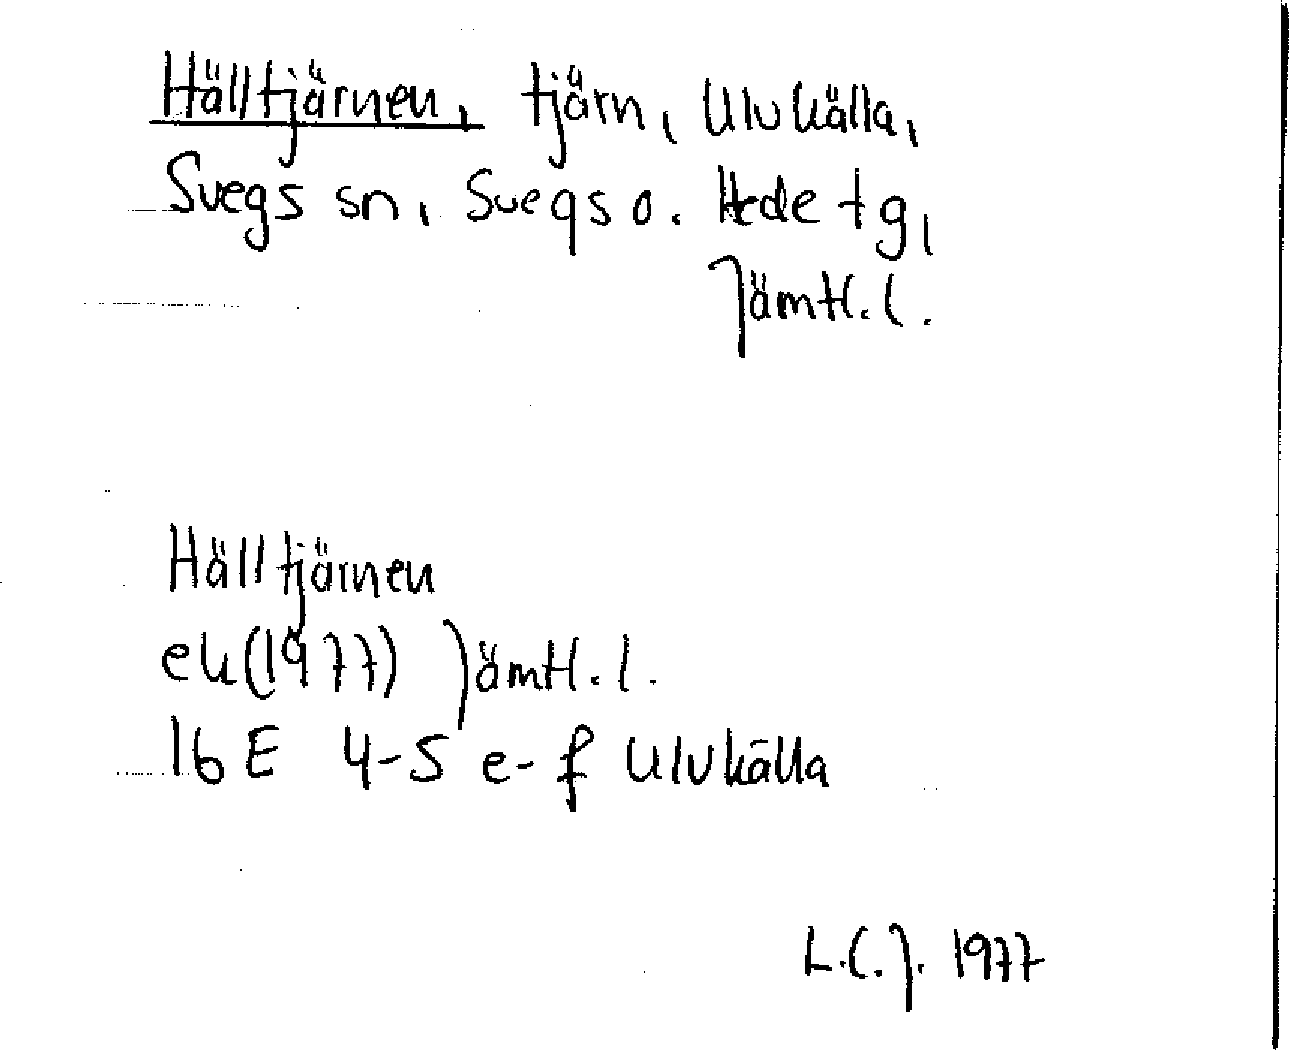 Hälltjärnen, tjärn, Ulvkälla,
Svegs sn, Svegs o. Hede tg,
Jämtl. l.
Hälltjärnen
ek(1977) Jämtl. l.
16 E 4-5 e-f Ulvkälla
L.C.J. 1977